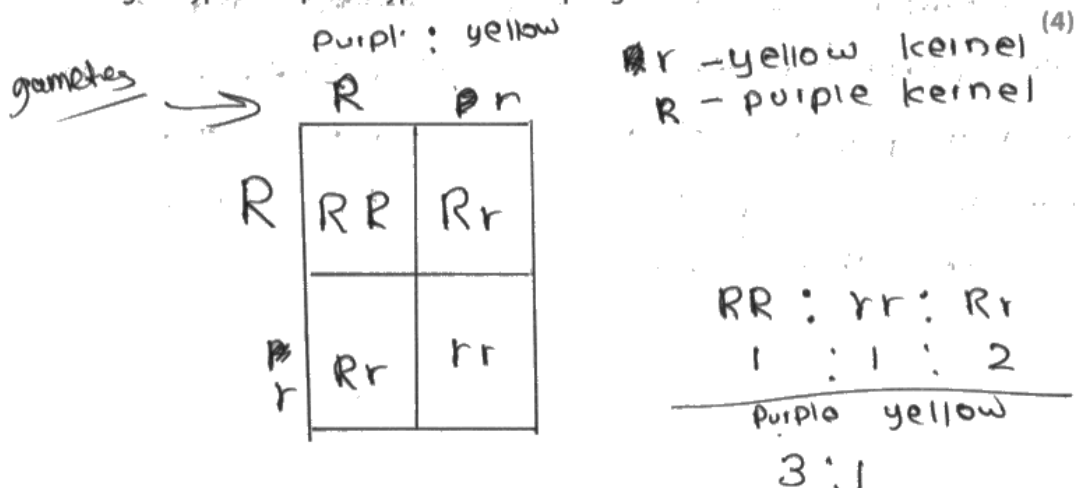 purpl : yellow
(4)
r - yellow kernel
R - purple kernel
gametes
R r
R RR Rr
r Rr rr
RR : rr : Rr
1 : 1 : 2
purple yellow
3 : 1